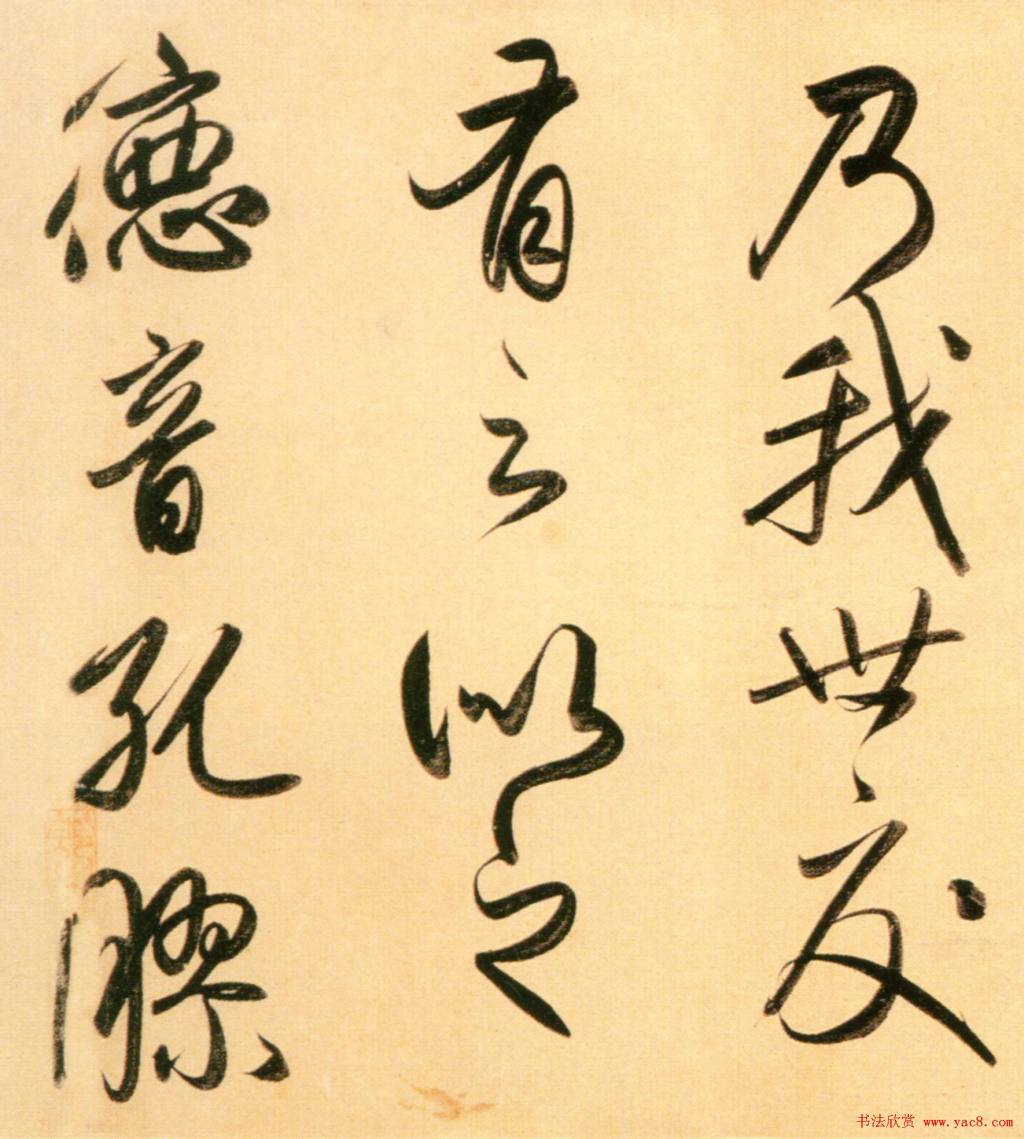 乃我世友
有之似之
德音孔膠
书法欣赏 www.yac8.com